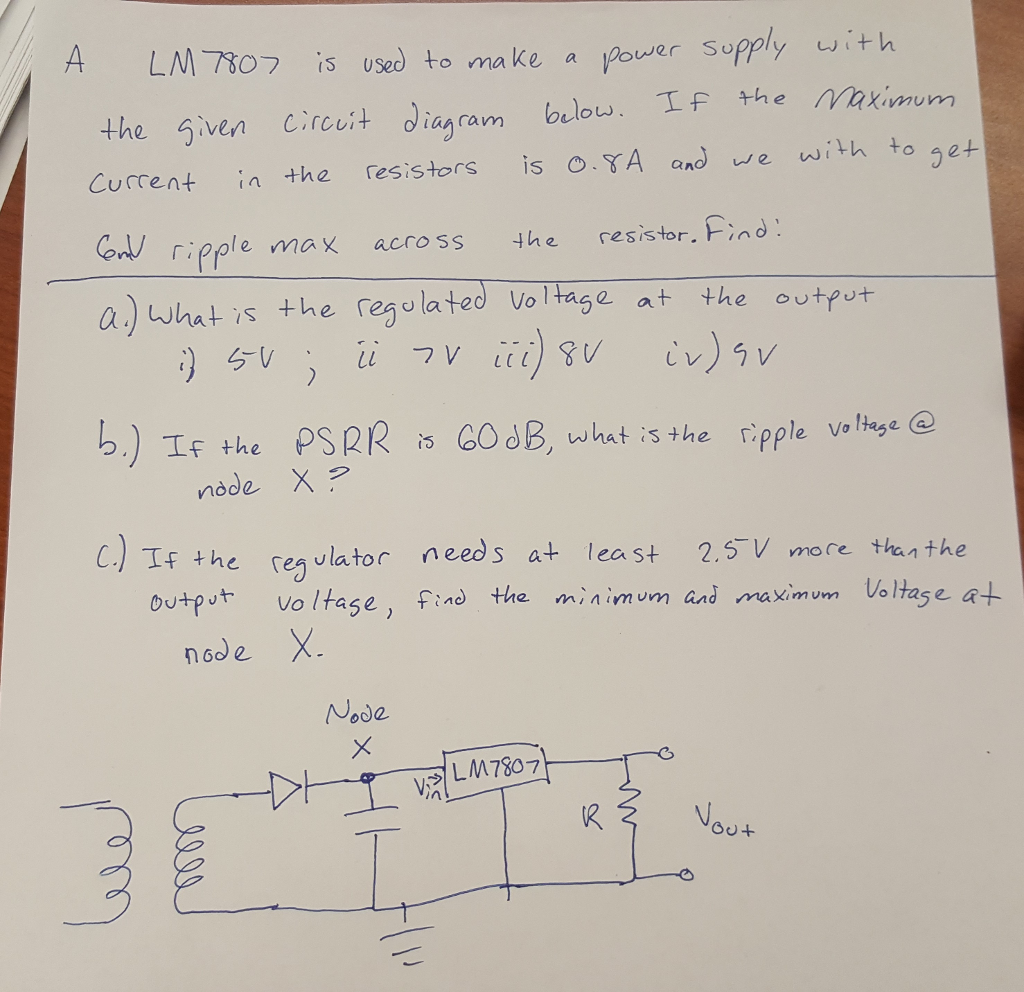 A LM7807 is used to make a power supply with
the given circuit diagram below. If the Maximum
Current in the resistors is 0.8A and we with to get
6mV ripple max across the resistor. Find:
a.) What is the regulated voltage at the output
i) 5V ; ii 7V iii) 8V iv) 9V
b.) If the PSRR is 60dB, what is the ripple voltage @
node X?
C.) If the regulator needs at least 2.5V more than the
output voltage, find the minimum and maximum Voltage at
node X.
Node
X
Vin
LM7807
R
Vout